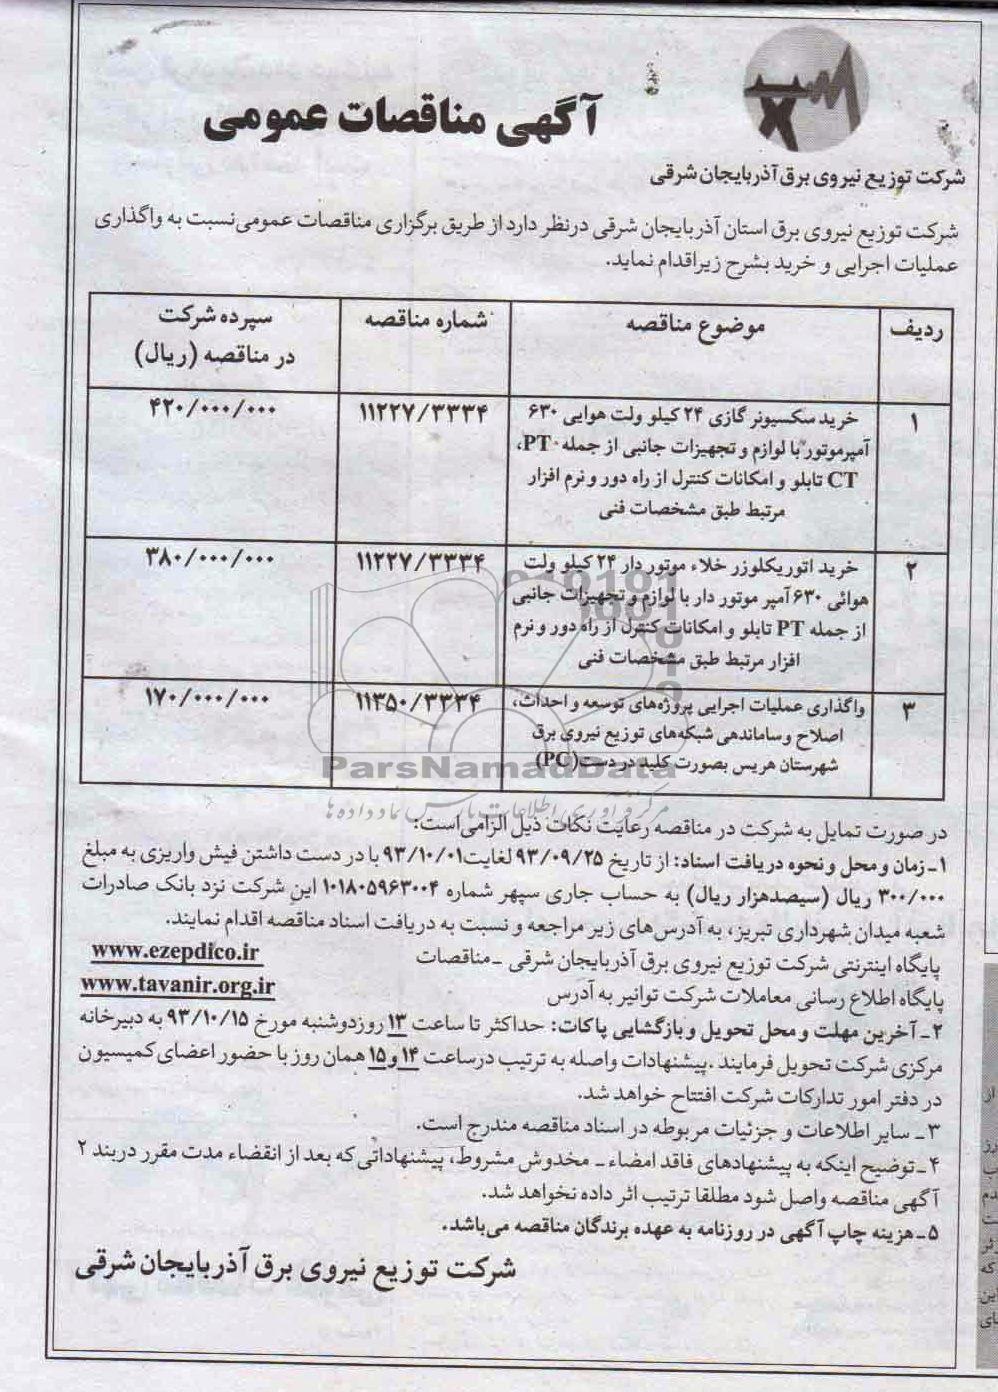 آگهی مناقصات عمومی
شرکت توزیع نیروی برق آذربایجان شرقی
شرکت توزیع نیروی برق استان آذربایجان شرقی درنظر دارد از طریق برگزاری مناقصات عمومی نسبت به واگذاری
عملیات اجرایی و خرید بشرح زیر اقدام نماید.
ردیف
موضوع مناقصه
شماره مناقصه
سپرده شرکت
در مناقصه (ریال)
۱
خرید سکسیونر گازی ۲۴ کیلو ولت هوایی ۶۳۰
آمپرموتور با لوازم و تجهیزات جانبی از جمله PT،
CT تابلو و امکانات کنترل از راه دور و نرم افزار
مرتبط طبق مشخصات فنی
۱۱۲۲۷/۳۳۳۴
۴۲۰/۰۰۰/۰۰۰
۲
خرید اتوریکلوزر خلاء موتور دار ۲۴ کیلو ولت
هوائی ۶۳۰ آمپر موتور دار با لوازم و تجهیزات جانبی
از جمله PT تابلو و امکانات کنترل از راه دور و نرم
افزار مرتبط طبق مشخصات فنی
۱۱۲۲۷/۳۳۳۴
۳۸۰/۰۰۰/۰۰۰
۳
واگذاری عملیات اجرایی پروژه‌های توسعه و احداث،
اصلاح و ساماندهی شبکه‌های توزیع نیروی برق
شهرستان هریس بصورت کلید در دست(PC)
۱۱۳۵۰/۳۳۳۴
۱۷۰/۰۰۰/۰۰۰
ParsNamadData
مرکز فرآوری اطلاعات پارس نماد داده ها
در صورت تمایل به شرکت در مناقصه رعایت نکات ذیل الزامی است:
۱ـ زمان و محل و نحوه دریافت اسناد: از تاریخ ۹۳/۰۹/۲۵ لغایت ۹۳/۱۰/۰۱ با در دست داشتن فیش واریزی به مبلغ
۳۰۰/۰۰۰ ریال (سیصدهزار ریال) به حساب جاری سپهر شماره ۱۰۱۸۰۵۹۶۳۰۰۴ این شرکت نزد بانک صادرات
شعبه میدان شهرداری تبریز، به آدرس‌های زیر مراجعه و نسبت به دریافت اسناد مناقصه اقدام نمایند.
پایگاه اینترنتی شرکت توزیع نیروی برق آذربایجان شرقی ـ مناقصات www.ezepdico.ir
پایگاه اطلاع رسانی معاملات شرکت توانیر به آدرس www.tavanir.org.ir
۲ـ آخرین مهلت و محل تحویل و بازگشایی پاکات: حداکثر تا ساعت ۱۳ روز دوشنبه مورخ ۹۳/۱۰/۱۵ به دبیرخانه
مرکزی شرکت تحویل فرمایند. پیشنهادات واصله به ترتیب درساعت ۱۴ و ۱۵ همان روز با حضور اعضای کمیسیون
در دفتر امور تدارکات شرکت افتتاح خواهد شد.
۳ـ سایر اطلاعات و جزئیات مربوطه در اسناد مناقصه مندرج است.
۴ـ توضیح اینکه به پیشنهادهای فاقد امضاء ـ مخدوش مشروط، پیشنهاداتی که بعد از انقضاء مدت مقرر دربند ۲
آگهی مناقصه واصل شود مطلقا ترتیب اثر داده نخواهد شد.
۵ـ هزینه چاپ آگهی در روزنامه به عهده برندگان مناقصه می‌باشد.
شرکت توزیع نیروی برق آذربایجان شرقی